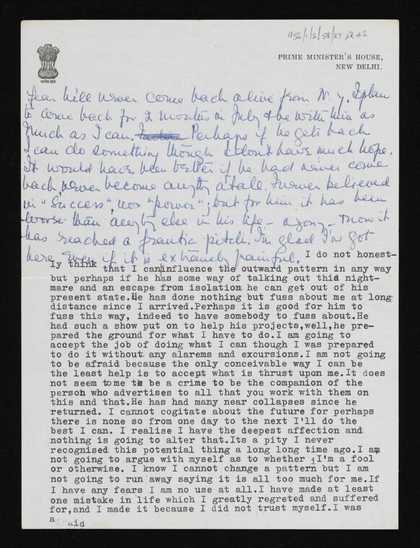 PRIME MINISTER'S HOUSE,
NEW DELHI.
fear he'll never come back alive from N.Y. I plan
to come back for 2 months in July & be with him as
much as I can. Perhaps if he gets back
I can do something though I don't have much hope.
It would have been better if he had never come
back never become anything at all. I never believed
in "Success", nor "power", but for him it has been
worse than anything else in his life - agony. Now it
has reached a frantic pitch. I'm glad I've got
here even if it is extremely painful.
I do not honest-
ly think that I can influence the outward pattern in any way
but perhaps if he has some way of talking out this night-
mare and an escape from isolation he can get out of his
present state. He has done nothing but fuss about me at long
distance since I arrived. Perhaps it is good for him to
fuss this way, indeed to have somebody to fuss about. He
had such a show put on to help his projects, well, he pre-
pared the ground for what I have to do. I am going to
accept the job of doing what I can though I was prepared
to do it without any alarems and excursions. I am not going
to be afraid because the only conceivable way I can be
the least help is to accept what is thrust upon me. It does
not seem to me to be a crime to be the companion of the
person who advertises to all that you work with them on
this and that. He has had many near collapses since he
returned. I cannot cogitate about the future for perhaps
there is none so from one day to the next I'll do the
best I can. I realize I have the deepest affection and
nothing is going to alter that. Its a pity I never
recognised this potential thing a long long time ago. I am
not going to argue with myself as to whether I'm a fool
or otherwise. I know I cannot change a pattern but I am
not going to run away saying it is all too much for me. If
I have any fears I am no use at all. I have made at least
one mistake in life which I greatly regreted and suffered
for, and I made it because I did not trust myself. I was